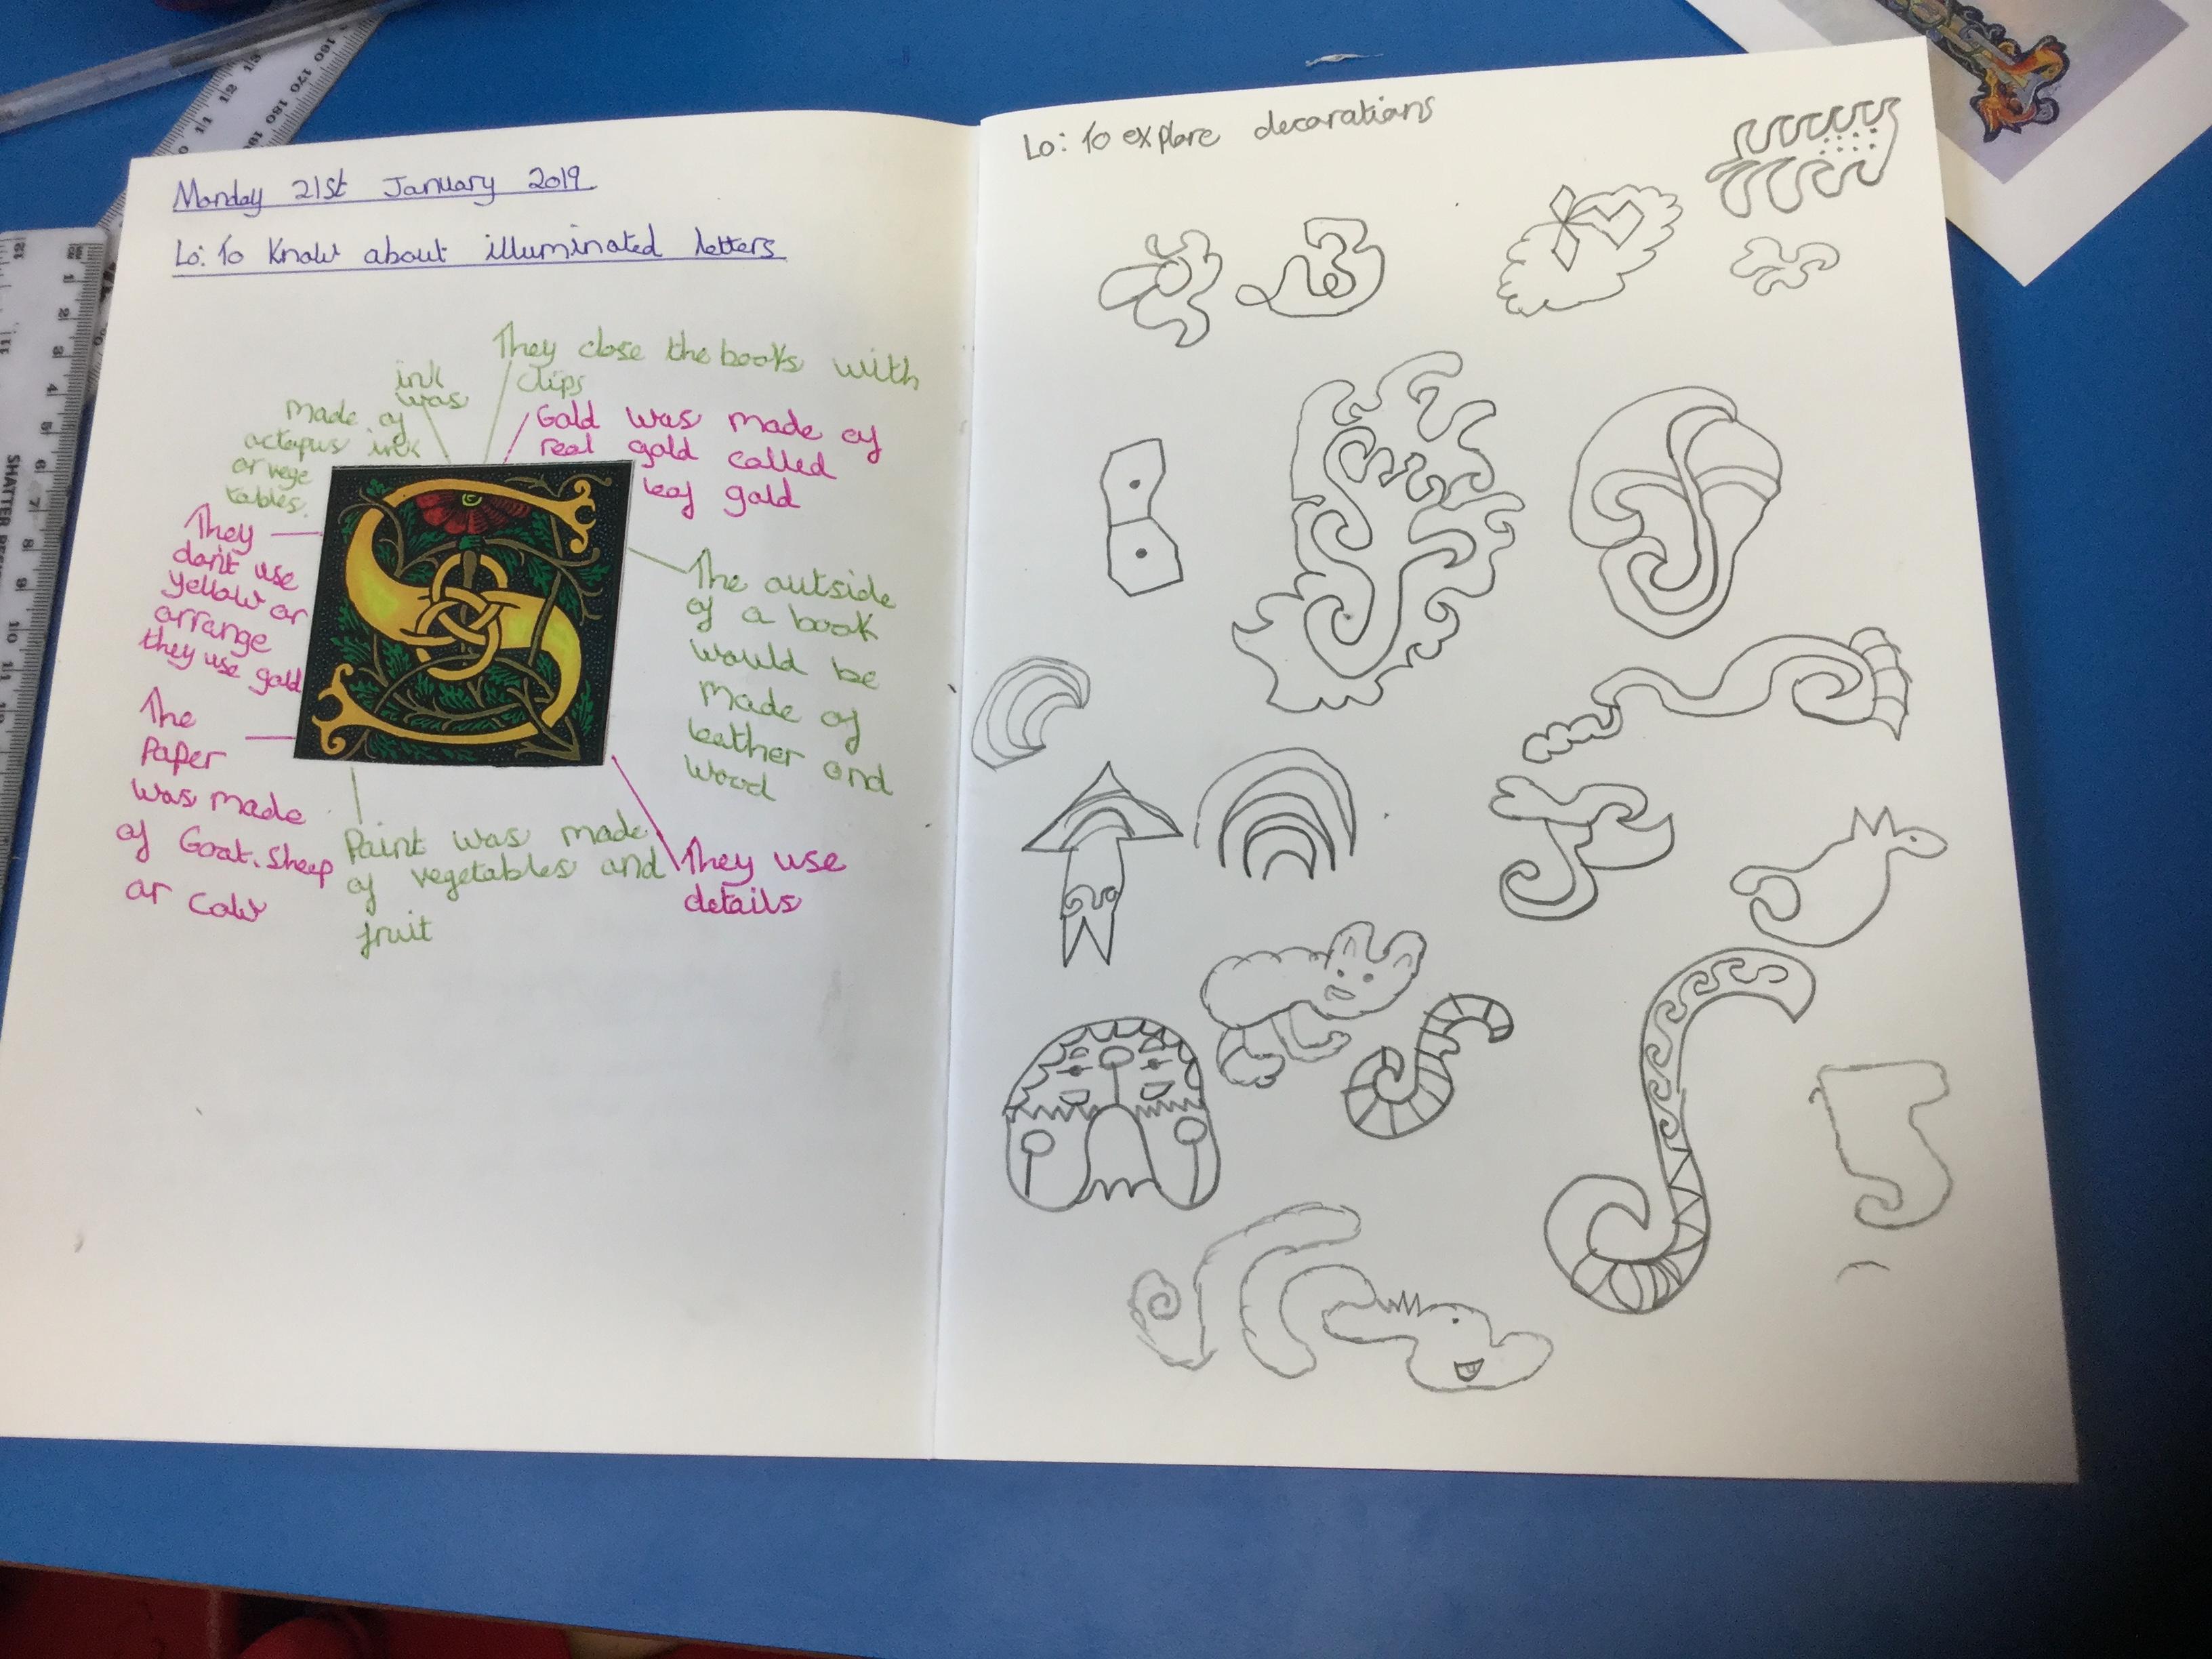 Monday 21st January 2019
Lo: To Know about illuminated letters
They close the books with
clips
ink
was
made of
octapus ink
or vege
tables.
Gold was made of
real gold called
leaf gold
They
don't use
yellow or
arrange
they use gold
The outside
of a book
would be
made of
leather and
wood
The
Paper
was made
of Goat. Sheep
or Cow
Paint was made
of vegetables and
fruit
They use
details
Lo: To explore decorations
SHATTER